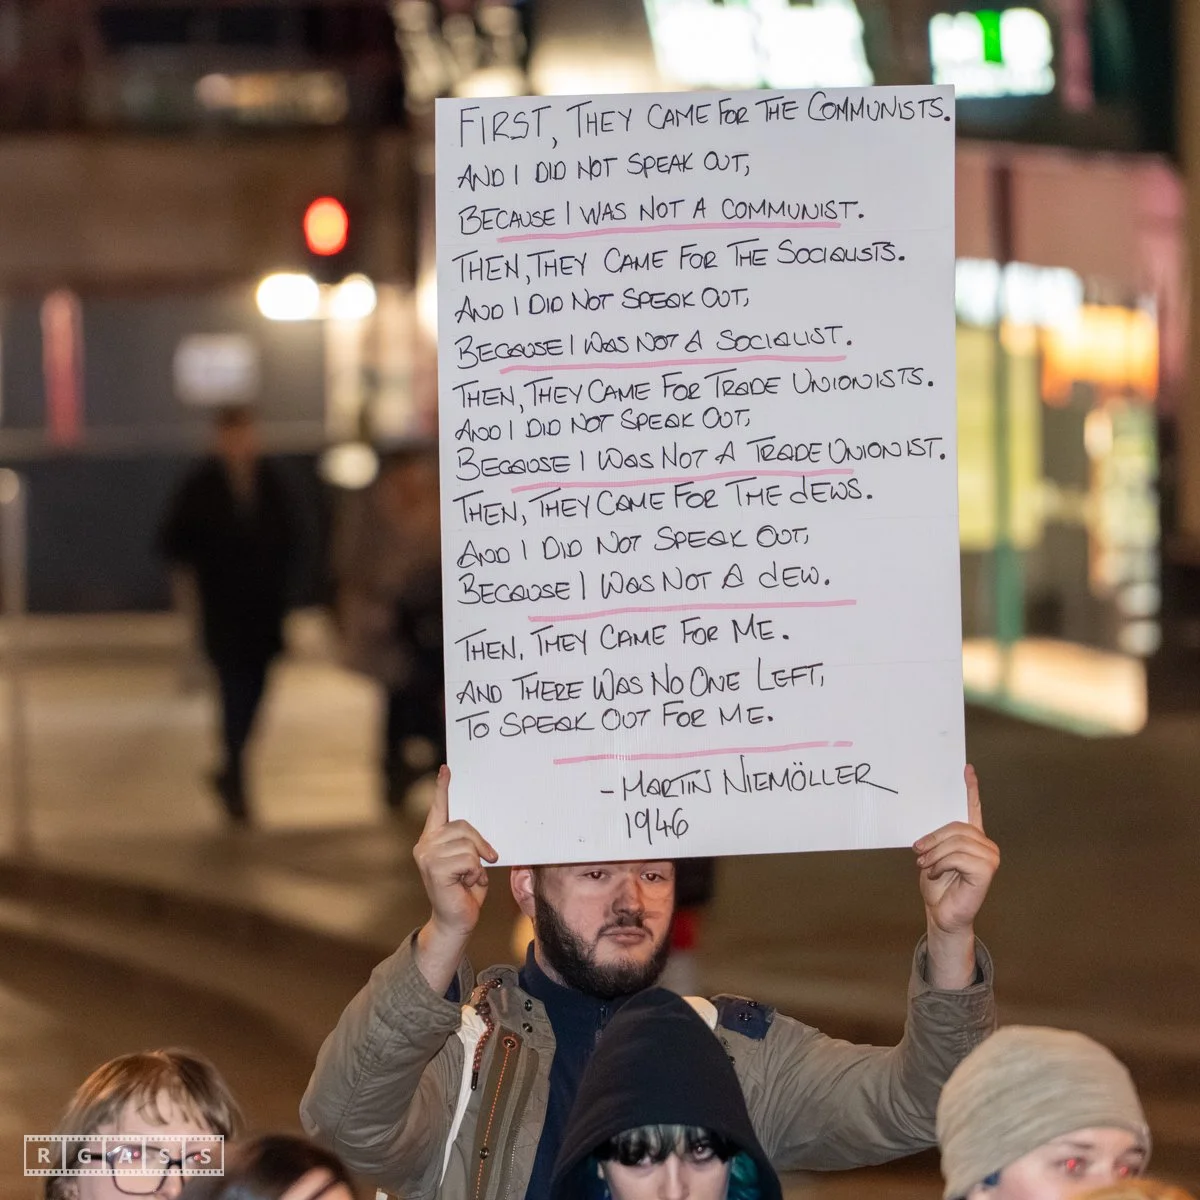 FIRST, THEY CAME FOR THE COMMUNISTS.
AND I DID NOT SPEAK OUT,
BECAUSE I WAS NOT A COMMUNIST.
THEN, THEY CAME FOR THE SOCIALISTS.
AND I DID NOT SPEAK OUT,
BECAUSE I WAS NOT A SOCIALIST.
THEN, THEY CAME FOR TRADE UNIONISTS.
AND I DID NOT SPEAK OUT,
BECAUSE I WAS NOT A TRADE UNIONIST.
THEN, THEY CAME FOR THE JEWS.
AND I DID NOT SPEAK OUT,
BECAUSE I WAS NOT A JEW.
THEN, THEY CAME FOR ME.
AND THERE WAS NO ONE LEFT,
TO SPEAK OUT FOR ME.
- MARTIN NIEMÖLLER
1946
RGASS